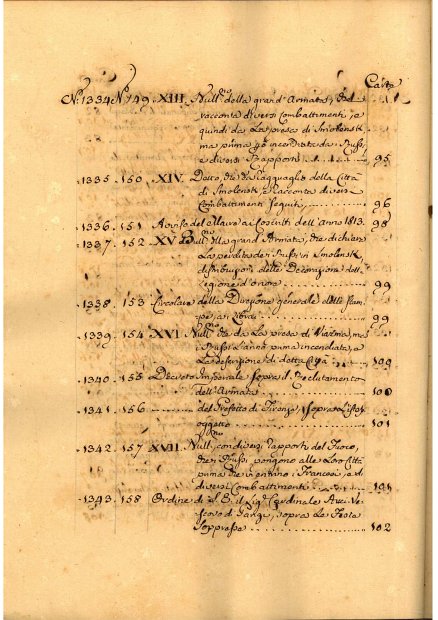 Carte
N: 1334 N: 149. XIII. Null.no della grand' Armata, che
racconta diversi Combattimenti, e
quindi da La presa di Smolensk
ma prima incendiata da Russi
e diversi Rapporti 95
1335. 150. XIV. Detto, che da Ragguaglio della Città
di Smolensk, e Racconta diversi
Combattimenti Seguiti 96
1336. 151 Avviso del Maire a Coscritti dell'Anno 1813. 98
1337. 152. XV Bull. della grand' Armata, che dichiara
La perdita dei Russi in Smolensk,
distribuzioni delle Decorazioni della
Legione d'onore 99
1338. 153. Circolare della Direzione generale delle Stam-
pe, ai 99
1339. 154. XVI. Bull. che da La presa di Viazma, ma
i Russi l'anno prima incendiata, e
La descrizione di detta Città 100
1340. 155 Decreto Imperiale Sopra il Reclutamento
dell'Armata 100
1341. 156 del Prefetto di Firenze, Sopra L'istesso
oggetto 101
1342. 157 XVII. Null., con diversi rapporti del Fuoco,
che i Russi pongono alle Loro Città
prima che vi entrino i Francesi, e di
diversi Combattimenti 101
1343. 158 Ordine di S.E. il Sig. Cardinale Arcive-
scovo di Parigi, Sopra Le Feste
Soppresse 102